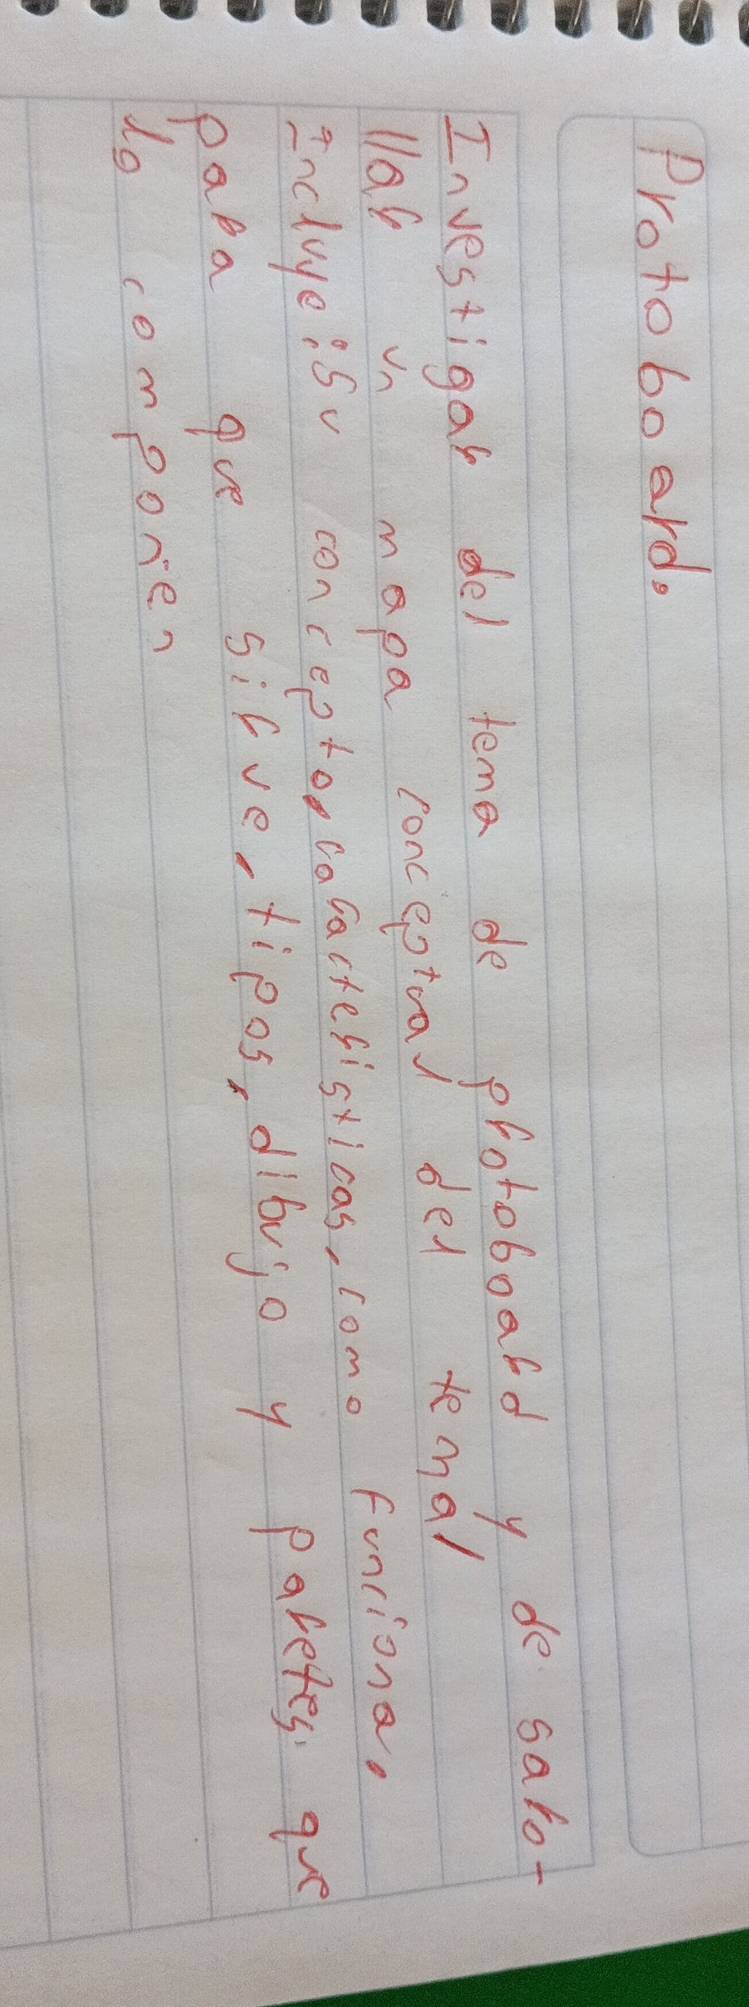 Protoboard.
Investigar del tema de protoboard y desarro-
llar un mapa conceptual del temal
Incluye: su concepto, características, como funciona,
para que sirve, tipos, dibujo y partes que
lo componen